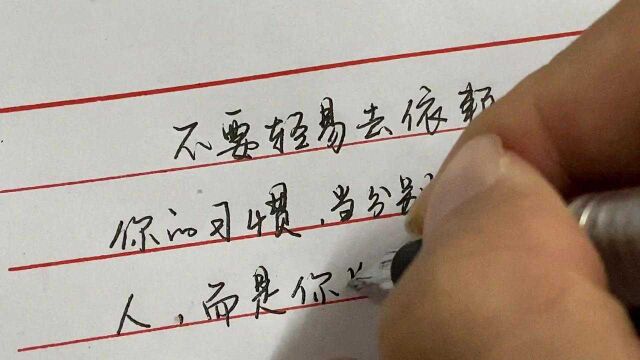 不要轻易去依赖
你的习惯，当分别
人，而是你